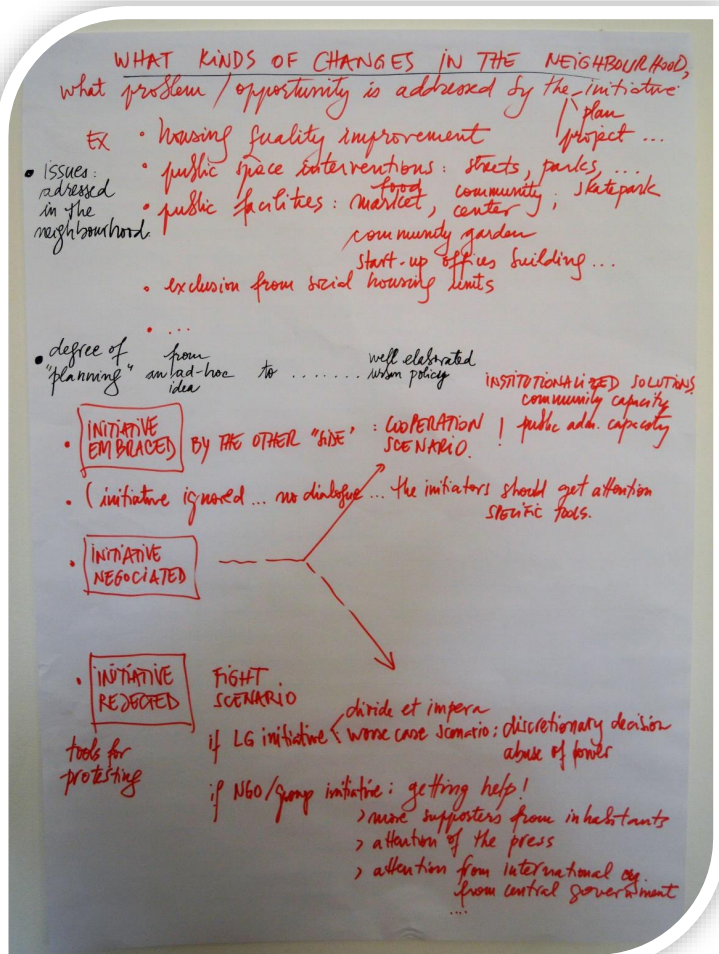 WHAT KINDS OF CHANGES IN THE NEIGHBOURHOOD,
what problem / opportunity is addressed by the initiative
plan
project ...
EX • housing quality improvement
• public space interventions: streets, parks, ...
• public facilities: food market, community center, skatepark
community garden
start-up offices building ...
• exclusion from social housing units
• ...
• issues:
adressed
in the
neighbourhood.
• degree of "planning" from an ad-hoc idea to ........ well elaborated urban policy
INSTITUTIONALIZED SOLUTIONS
community capacity
public adm. capacity
• INITIATIVE EMBRACED BY THE OTHER "SIDE" : COOPERATION SCENARIO. !
• (initiative ignored ... no dialogue ... the initiators should get attention
SPECIFIC TOOLS.
• INITIATIVE
NEGOCIATED
• INITIATIVE
REJECTED
FIGHT
SCENARIO
tools for
protesting
divide et impera
if LG initiative worse case scenario: discretionary decision
abuse of power
if NGO/group initiative: getting help!
> more supporters from inhabitants
> attention of the press
> attention from international og.
from central government
....